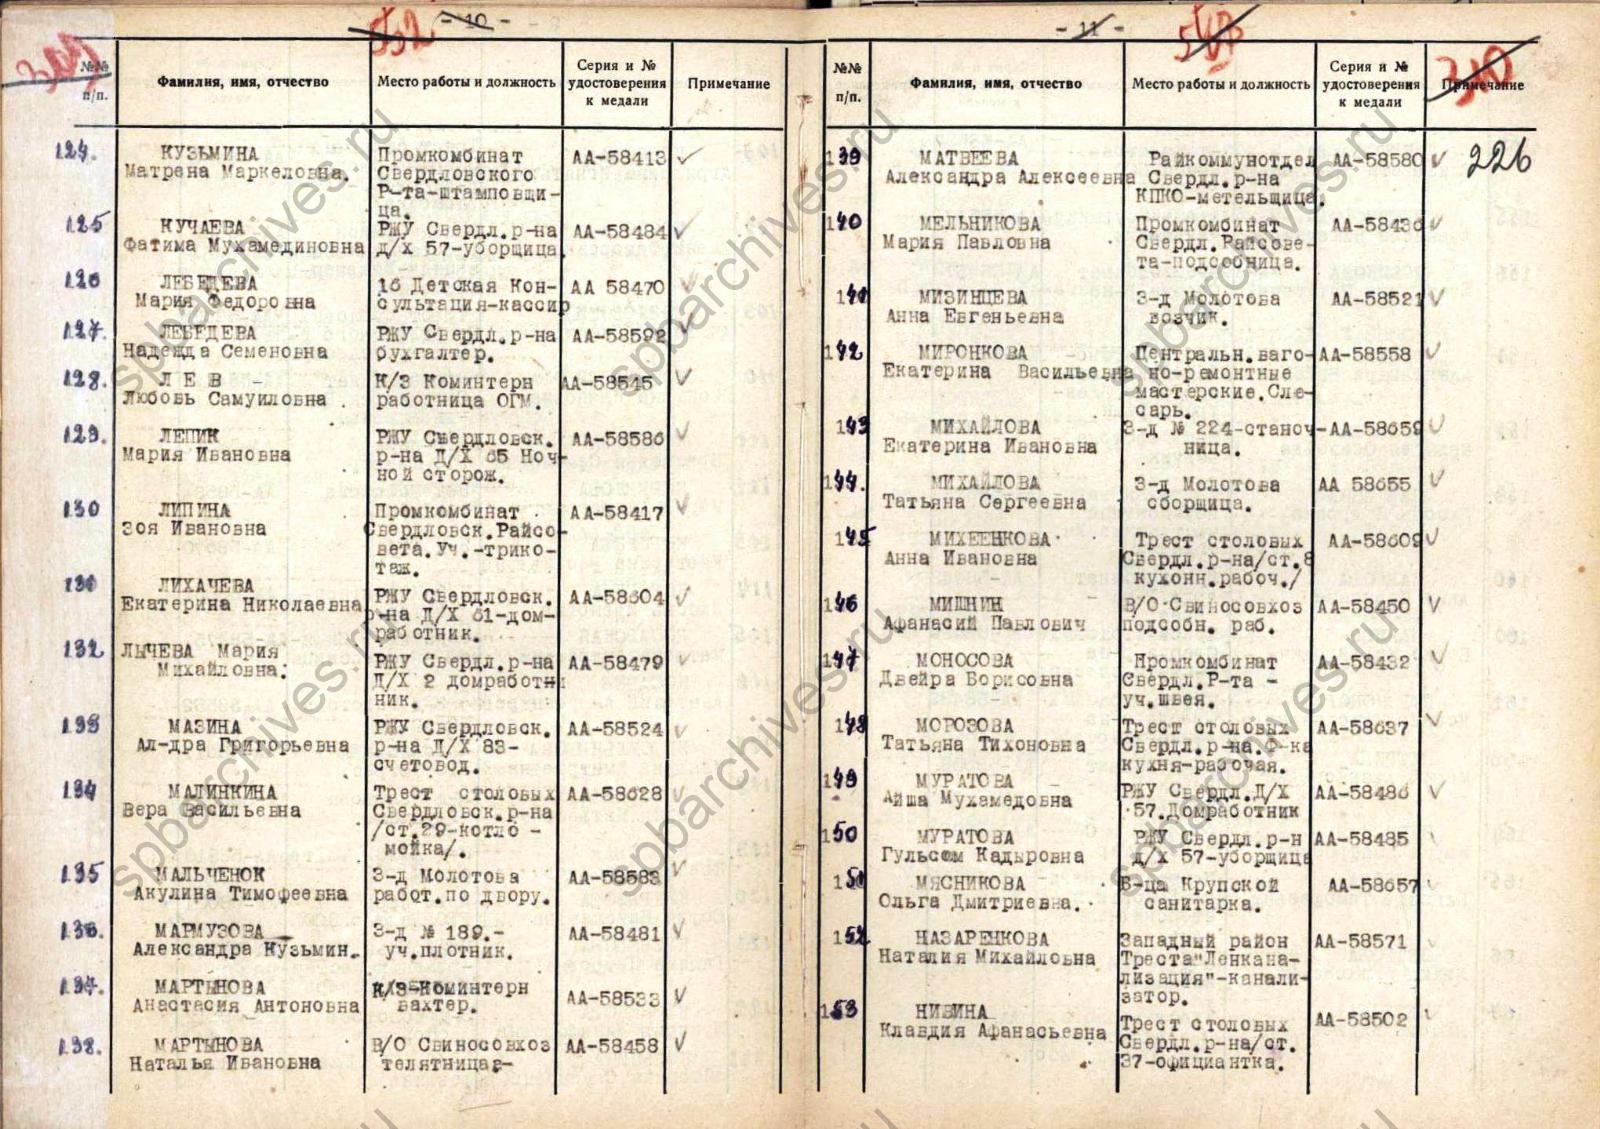 - 10 -
532
№№ п/п.
Фамилия, имя, отчество
Место работы и должность
Серия и № удостоверения к медали
Примечание
124. КУЗЬМИНА Промкомбинат АА-58413 ✓
Матрена Маркеловна. Свердловского
Р-та-штамповщи-
ца.
125 КУЧАЕВА РЖУ Свердл.р-на АА-58484 ✓
Фатима Мухамединовна д/х 57-уборщица.
126 ЛЕБЕДЕВА 16 Детская Кон- АА 58470 ✓
Мария Федоровна сультация-кассир
127. ЛЕБЕДЕВА РЖУ Свердл.р-на АА-58592 ✓
Надежда Семеновна бухгалтер.
128. Л Е В - К/З Коминтерн АА-58545 ✓
Любовь Самуиловна . работница ОГМ.
129. ЛЕПИК РЖУ Свердловск. АА-58586 ✓
Мария Ивановна р-на Д/Х 65 Ноч-
ной сторож.
130 ЛИПИНА Промкомбинат АА-58417 ✓
Зоя Ивановна Свердловск.Райсо-
вета.Уч.-трико-
таж.
131 ЛИХАЧЕВА РЖУ Свердловск. АА-58604 ✓
Екатерина Николаевна р-на Д/Х 61-дом-
работник.
132 ЛЫЧЕВА Мария РЖУ Свердл.р-на АА-58479 ✓
Михайловна: Д/Х 2 домработни
ник.
133 МАЗИНА РЖУ Свердловск. АА-58524 ✓
Ал-дра Григорьевна р-на Д/Х 83-
счетовод.
134 МАЛИНКИНА Трест столовых АА-58628 ✓
Вера Васильевна Свердловск.р-на
/ст.29-котло -
мойка/.
135 МАЛЬЧЕНОК З-д Молотова АА-58583 ✓
Акулина Тимофеевна работ.по двору.
136. МАРМУЗОВА З-д № 189.- АА-58481 ✓
Александра Кузьмин. уч.плотник.
137. МАРТЫНОВА К/З Коминтерн АА-58533 ✓
Анастасия Антоновна вахтер.
138. МАРТЫНОВА В/О Свиносовхоз АА-58458 ✓
Наталья Ивановна телятница.-
- 11 -
310
№№ п/п.
Фамилия, имя, отчество
Место работы и должность
Серия и № удостоверения к медали
Примечание
139 МАТВЕЕВА Райкоммунотдел АА-58580 ✓ 226
Александра Алексеевна Свердл.р-на
КПКО-метельщица.
140 МЕЛЬНИКОВА Промкомбинат АА-58436 ✓
Мария Павловна Свердл.Райсове-
та-подсобница.
141 МИЗИНЦЕВА З-д Молотова АА-58521 ✓
Анна Евгеньевна возчик.
142 МИРОНКОВА Центральн.ваго- АА-58558 ✓
Екатерина Васильевна но-ремонтные
мастерские.Сле-
сарь.
143 МИХАЙЛОВА З-д № 224-станоч- АА-58659 ✓
Екатерина Ивановна ница.
144. МИХАЙЛОВА З-д Молотова АА 58655 ✓
Татьяна Сергеевна сборщица.
145 МИХЕЕНКОВА Трест столовых АА-58609 ✓
Анна Ивановна Свердл.р-на/ст.8
кухонн.рабоч./
146 МИШНИН В/О Свиносовхоз АА-58450 ✓
Афанасий Павлович подсобн. раб.
147 МОНОСОВА Промкомбинат АА-58432 ✓
Двейра Борисовна Свердл.Р-та -
уч.швея.
148 МОРОЗОВА Трест столовых АА-58637 ✓
Татьяна Тихоновна Свердл.р-на.Ф-ка
кухня-рабочая.
149 МУРАТОВА РЖУ Свердл.Д/Х АА-58486 ✓
Айша Мухамедовна 57.Домработник
150 МУРАТОВА РЖУ Свердл.р-н АА-58485 ✓
Гульсюм Кадыровна д/х 57-уборщица
151 МЯСНИКОВА Б-ца Крупской АА-58657 ✓
Ольга Дмитриевна. санитарка.
152 НАЗАРЕНКОВА Западный район АА-58571 ✓
Наталия Михайловна Треста"Ленкана-
лизация"-канали-
затор.
153 НИВИНА Трест столовых АА-58502 ✓
Клавдия Афанасьевна Свердл.р-на/ст.
37-официантка.
spbarchives.ru